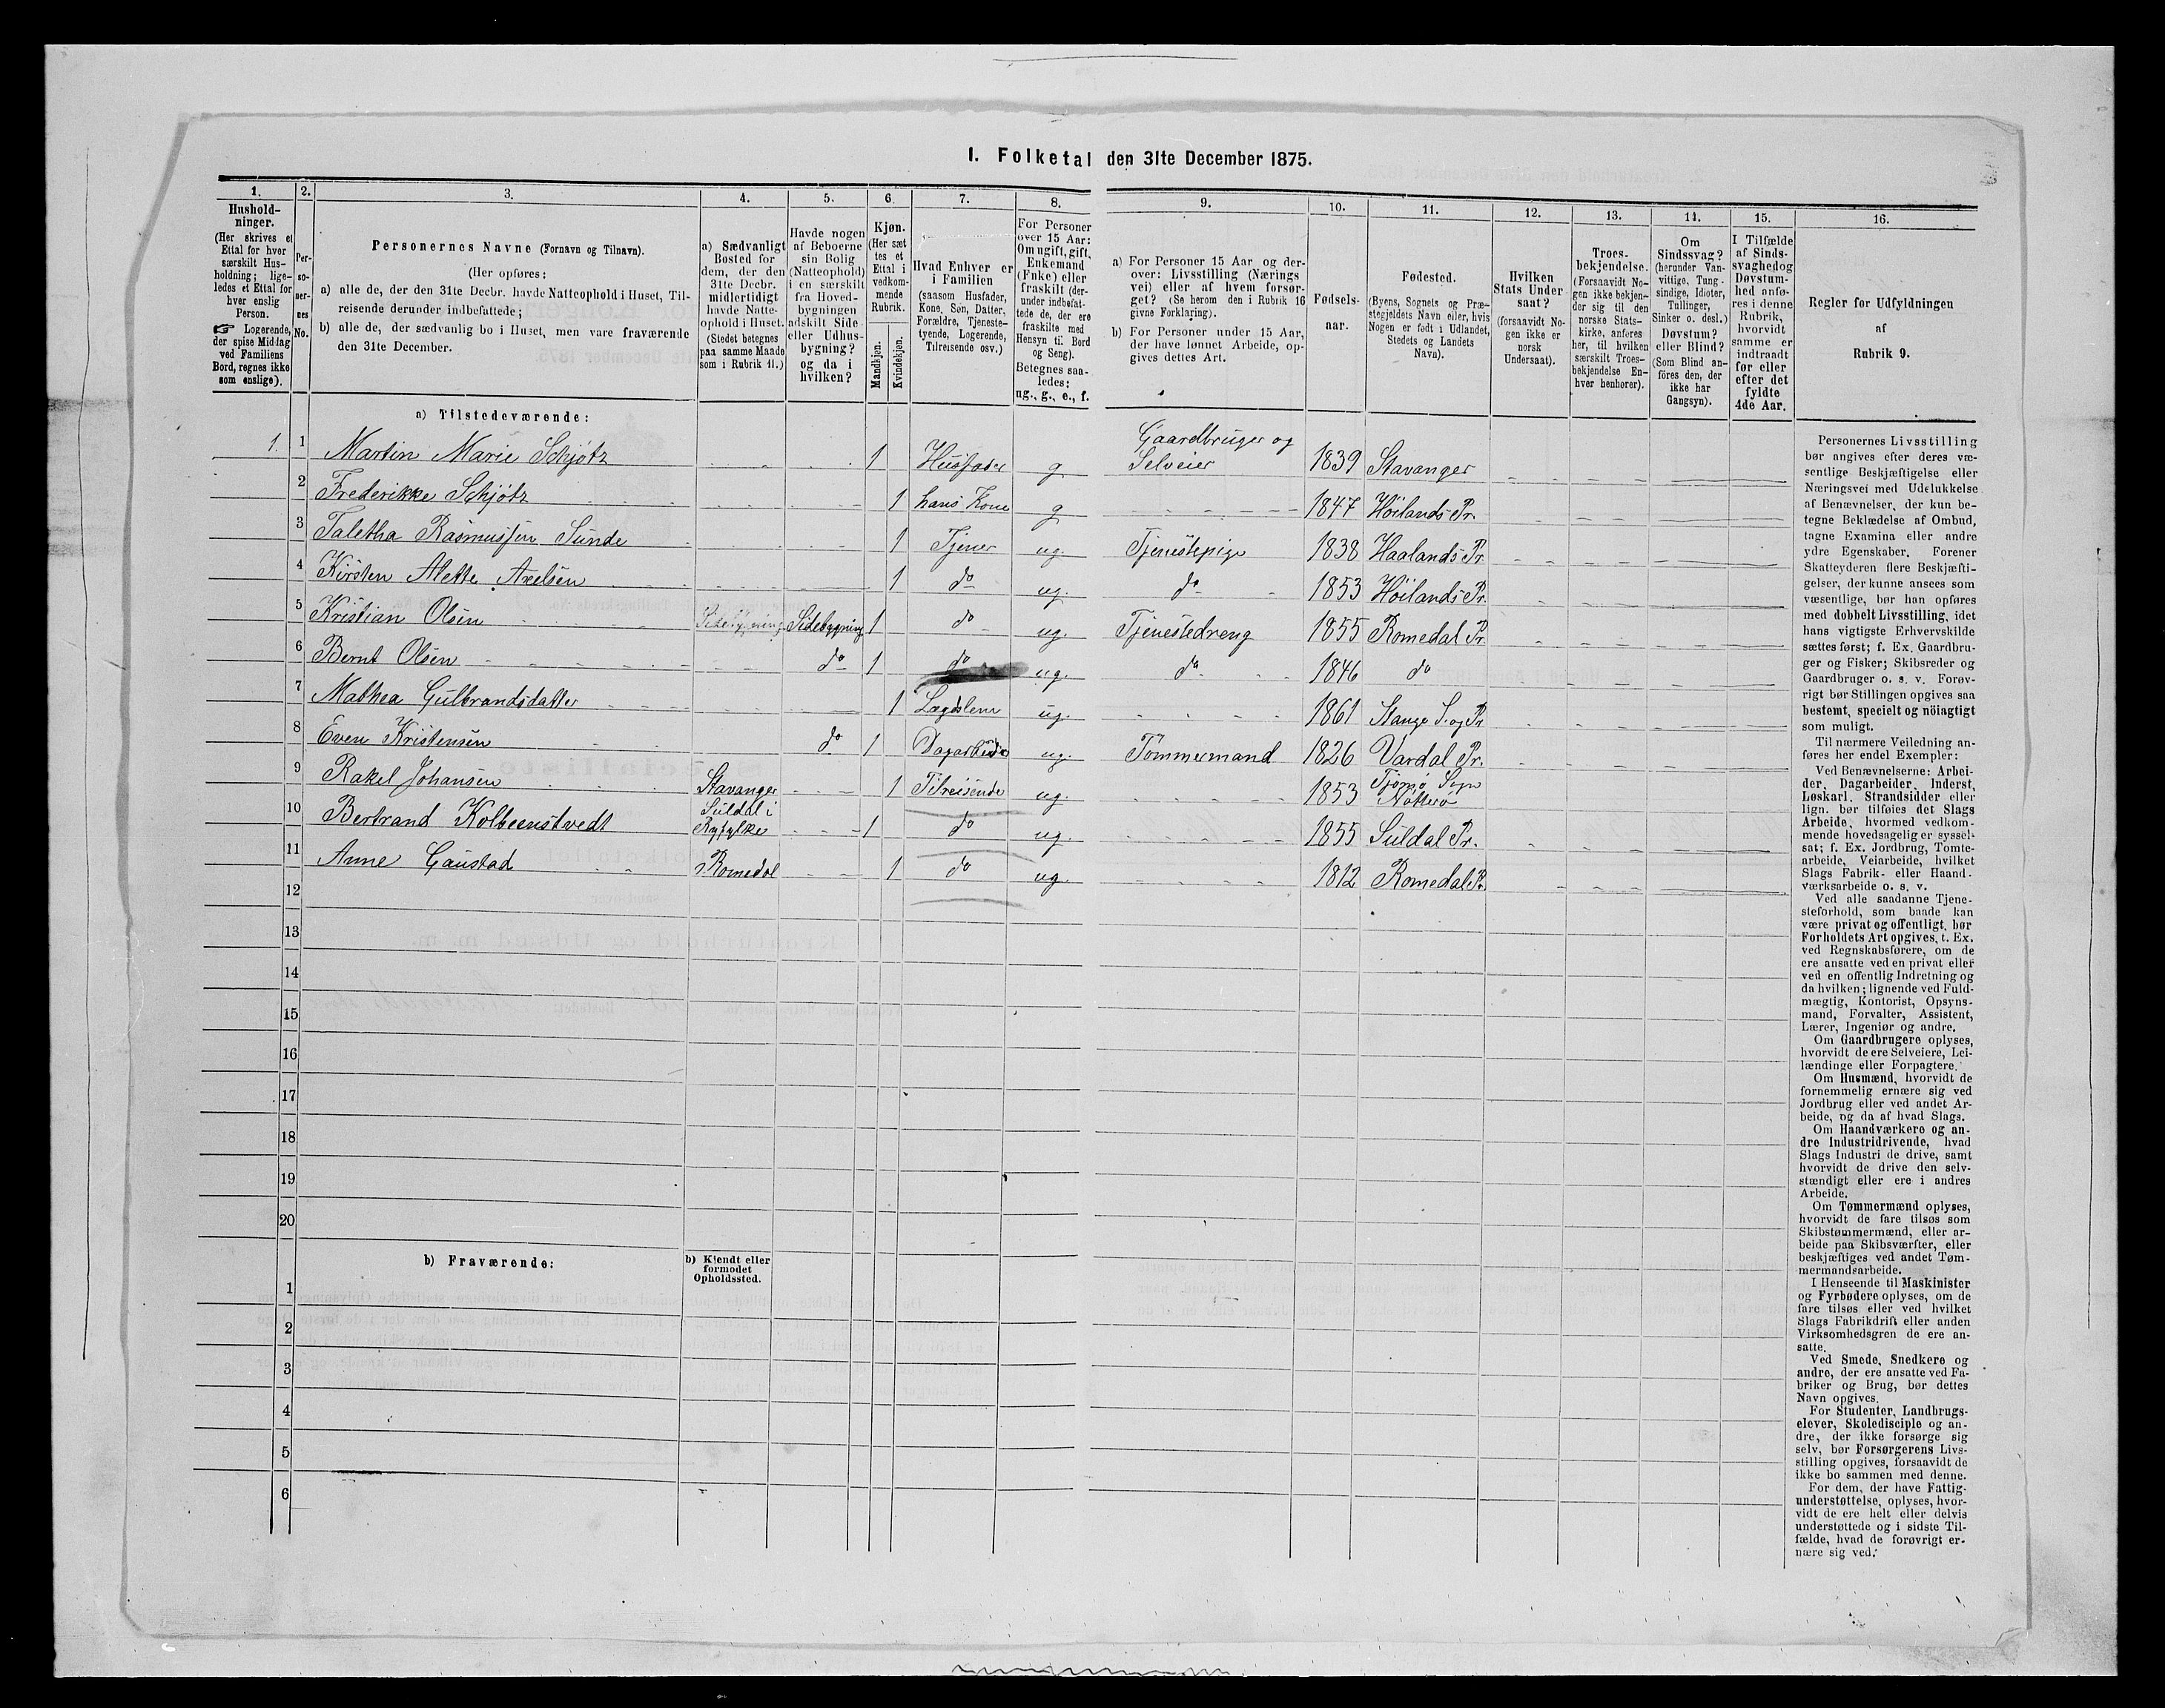 I. Folketal den 31te December 1875.
1.
Hushold-
ninger.
(Her skrives et
Ettal for hver
særskilt Hus-
holdning; lige-
ledes et Ettal for
hver enslig
Person.
☞ Logerende,
der spise Middag
ved Familiens
Bord, regnes ikke
som enslige).
2.
Per-
so-
ner-
nes
No.
3.
Personernes Navne (Fornavn og Tilnavn).
(Her opføres:
a) alle de, der den 31te Decbr. havde Natteophold i Huset, Til-
reisende derunder indbefattede;
b) alle de, der sædvanlig bo i Huset, men vare fraværende
den 31te December.
4.
a) Sædvanligt
Bosted for
dem, der den
31te Decbr.
midlertidigt
havde Natte-
ophold i Huset.
(Stedet betegnes
paa samme Maade
som i Rubrik 11.)
5.
Havde nogen
af Beboerne
sin Bolig
(Natteophold)
i en særskilt
fra Hoved-
bygningen
adskilt Side-
eller Udhus-
bygning?
og da i
hvilken?
6.
Kjøn.
(Her sæt
tes et
Ettal i
vedkom-
mende
Rubrik.
Mandkjøn.
Kvindekjøn.
7.
Hvad Enhver er
i Familien
(saasom Husfader,
Kone, Søn, Datter,
Forældre, Tjeneste-
tyende, Logerende,
Tilreisende osv.)
8.
For Personer
over 15 Aar:
Om ugift, gift,
Enkemand
(Enke) eller
fraskilt (der-
under indbefat-
tede de, der ere
fraskilte med
Hensyn til Bord
og Seng).
Betegnes saa-
ledes:
ug., g., e., f.
9.
a) For Personer 15 Aar og der-
over: Livsstilling (Nærings
vei) eller af hvem forsør-
get? (Se herom den i Rubrik 16
givne Forklaring).
b) For Personer under 15 Aar,
der have lønnet Arbeide, op-
gives dettes Art.
10.
Fødsels-
aar.
11.
Fødested.
(Byens, Sognets og Præ-
stegjeldets Navn eller, hvis
Nogen er født i Udlandet,
Stedets og Landets
Navn).
12.
Hvilken
Stats Under
saat?
(forsaavidt No-
gen ikke er
norsk
Undersaat).
13.
Troes-
bekjendelse.
(Forsaavidt No-
gen ikke bekjen-
der sig til den
norske Stats-
kirke, anføres
her, til hvilken
særskilt Troes-
bekjendelse En-
hver henhører).
14.
Om
Sindssvag?
(herunder Van-
vittige, Tung-
sindige, Idioter,
Tullinger,
Sinker o. desl.)
Døvstum?
eller Blind?
(Som Blind an-
føres den, der
ikke har
Gangsyn).
15.
I Tilfælde
af Sinds-
svaghed og
Døvstum-
hed anfø-
res i denne
Rubrik,
hvorvidt
samme er
indtraadt
før eller
efter det
fyldte
4de Aar.
16.
Regler for Udfyldningen
af
Rubrik 9.
a) Tilstedeværende:
1. 1 Martin Marie Schjötz 1 Husfader g Gaardbruger og Selveier 1839 Stavanger
2 Frederikke Schjötz 1 hans Kone g 1847 Höilands Pr.
3 Taletha Rasmussen Sunde 1 Tjener ug. Tjenestepige 1838 Haalands Pr.
4 Kirsten Alette Axelsen 1 do ug. do 1853 Höilands Pr.
5 Kristian Olsen Sidebygning 1 do ug. Tjenestedreng 1855 Romedal Pr.
6 Bernt Olsen do 1 do ug. do 1846 do
7 Mathea Gulbrandsdatter 1 Lægdslem ug. 1861 Stange S. og Pr.
8 Even Kristensen do 1 Dagarbeider ug. Tömmermand 1826 Vardal Pr.
9 Rakel Johansen Stavanger 1 Tilreisende ug. 1853 Tjömö Sogn Nötterö
10 Bertrand Kolbeenstvedt Suldal i Ryfylke 1 do ug. 1855 Suldal Pr.
11 Anne Gaustad Romedal 1 do ug. 1812 Romedal Pr.
12
13
14
15
16
17
18
19
20
b) Fraværende:
b) Kjendt eller
formodet
Opholdssted.
1
2
3
4
5
6
Personernes Livsstilling
bør angives efter deres væ-
sentlige Beskjæftigelse eller
Næringsvei med Udelukkelse
af Benævnelser, der kun be-
tegne Beklædelse af Ombud,
tagne Examina eller andre
ydre Egenskaber. Forener
Skatteyderen flere Beskjæfti-
gelser, der kunne ansees som
væsentlige, bør han opføres
med dobbelt Livsstilling, idet
hans vigtigste Erhvervskilde
sættes først; f. Ex. Gaardbru-
ger og Fisker; Skibsreder og
Gaardbruger o. s. v. Forøv-
rigt bør Stillingen opgives saa
bestemt, specielt og nöiagtigt
som muligt.
Til nærmere Veiledning an-
føres her endel Exempler:
Ved Benævnelserne: Arbei-
der, Dagarbeider, Inderst,
Løskarl, Strandsidder eller
lign. bør tilføies det Slags
Arbeide, hvormed vedkom-
mende hovedsagelig er syssel-
sat; f. Ex. Jordbrug, Tomte-
arbeide, Veiarbeide, hvilket
Slags Fabrik- eller Haand-
værksarbeide o. s. v.
Ved alle saadanne Tjene-
steforhold, som baade kan
være privat og offentligt, bør
Forholdets Art opgives, t. Ex.
ved Regnskabsførere, om de
ere ansatte ved en privat eller
ved en offentlig Indretning og
da hvilken; lignende ved Fuld-
mægtig, Kontorist, Opsyns-
mand, Forvalter, Assistent,
Lærer, Ingeniør og andre.
Om Gaardbrugere oplyses,
hvorvidt de ere Selveiere, Lei-
lændinge eller Forpagtere.
Om Husmænd, hvorvidt de
fornemmelig ernære sig ved
Jordbrug eller ved andet Ar-
beide, og da af hvad Slags.
Om Haandværkere og an-
dre Industridrivende, hvad
Slags Industri de drive, samt
hvorvidt de drive den selv-
stændigt eller ere i andres
Arbeide.
Om Tømmermænd oplyses,
hvorvidt de fare tilsøs som
Skibstømmermænd, eller ar-
beide paa Skibsværfter, eller
beskjæftiges ved andet Tøm-
mermandsarbeide.
I Henseende til Maskinister
og Fyrbødere oplyses, om de
fare tilsøs eller ved hvilket
Slags Fabrikdrift eller anden
Virksomhedsgren de ere an-
satte.
Ved Smede, Snedkere og
andre, der ere ansatte ved Fa-
briker og Brug, bør dettes
Navn opgives.
For Studenter, Landbrugs-
elever, Skoledisciple og an-
dre, der ikke forsørge sig
selv, bør Forsørgerens Livs-
stilling opgives, forsaavidt de
ikke bo sammen med denne.
For dem, der have Fattig-
understøttelse, oplyses, hvor-
vidt de ere helt eller delvis
understøttede og i sidste Til-
fælde, hvad de forøvrigt er-
nære sig ved.